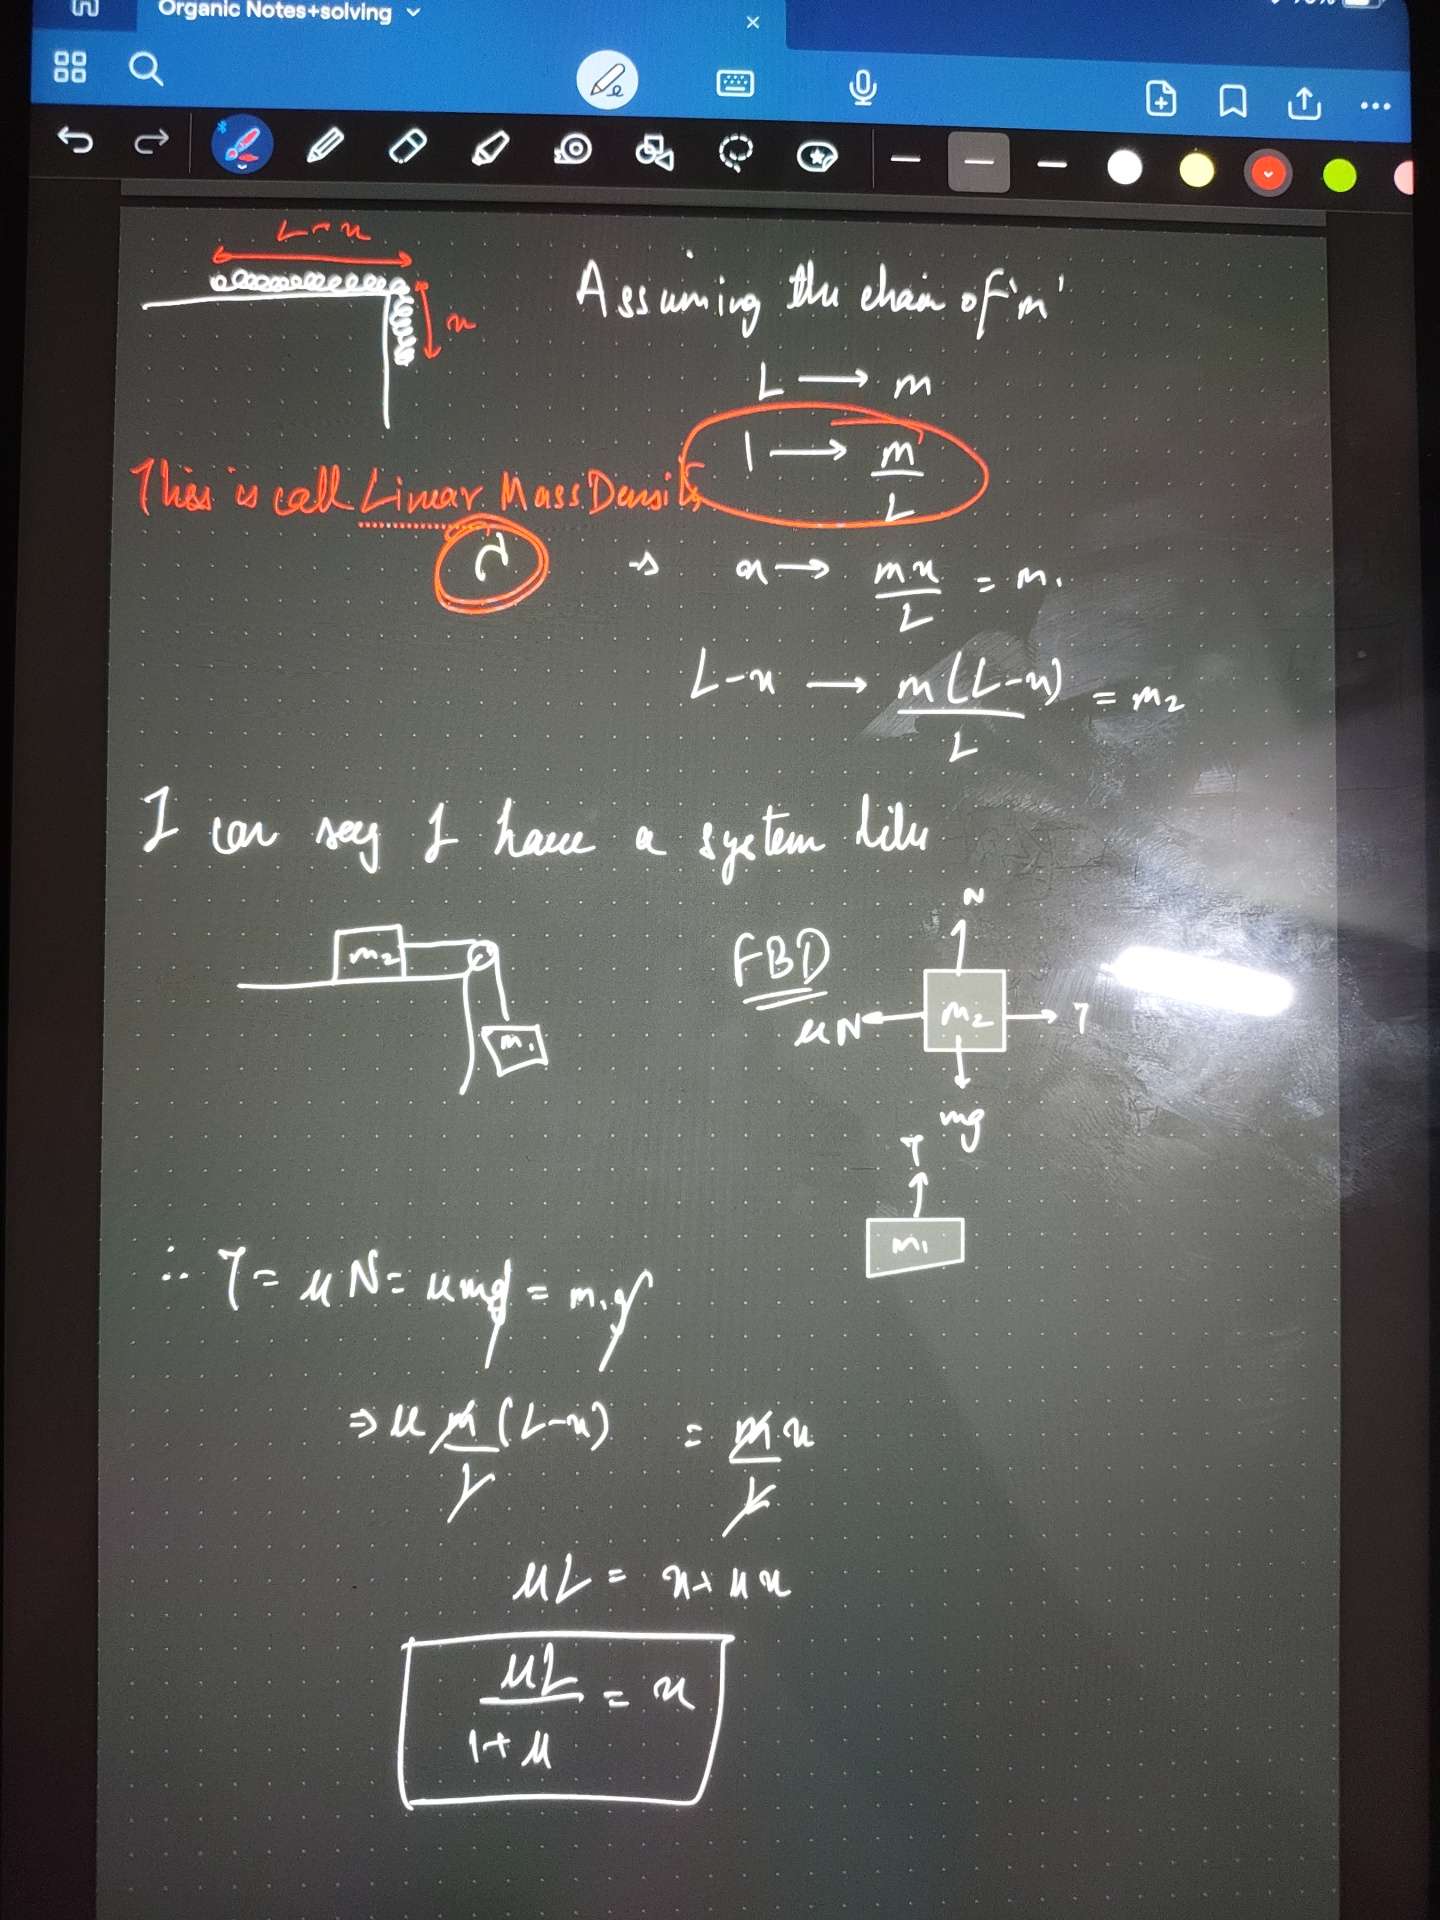 Organic Notes+solving
L-x
x
Assuming the chain of 'm'
L → m
1 → m/L
This is call Linear Mass Density
λ
⇒ x → mx/L = m₁
L-x → m(L-x)/L = m₂
I can say I have a system like
m₂
m₁
FBD
N
μN
m₂
T
mg
T
m₁
∴ T = μN = μmg = m₁g
⇒ μ m/L (L-x) = m/L x
μL = x + μx
μL/(1+μ) = x